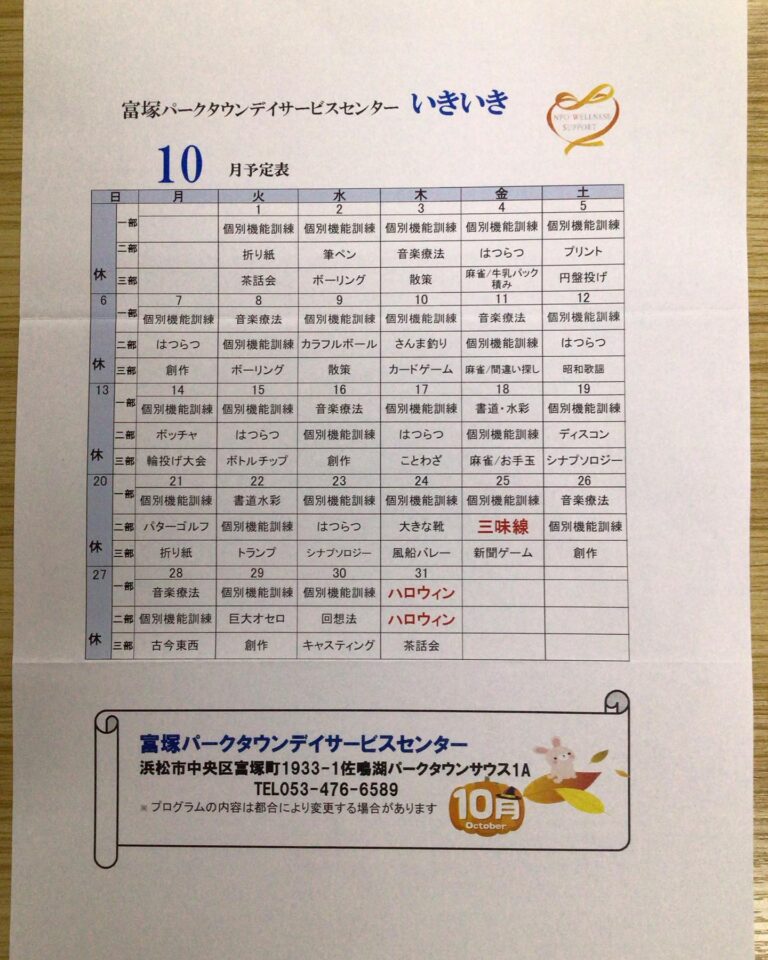 富塚パークタウンデイサービスセンター いきいき
NPO WELLNESS
SUPPORT
10 月予定表
日 月 火 水 木 金 土
1 2 3 4 5
一部 個別機能訓練 個別機能訓練 個別機能訓練 個別機能訓練 個別機能訓練
二部 折り紙 筆ペン 音楽療法 はつらつ プリント
休 三部 茶話会 ボーリング 散策 麻雀/牛乳パック積み 円盤投げ
6 7 8 9 10 11 12
一部 個別機能訓練 音楽療法 個別機能訓練 個別機能訓練 音楽療法 個別機能訓練
二部 はつらつ 個別機能訓練 カラフルボール さんま釣り 個別機能訓練 はつらつ
休 三部 創作 ボーリング 散策 カードゲーム 麻雀/間違い探し 昭和歌謡
13 14 15 16 17 18 19
一部 個別機能訓練 個別機能訓練 音楽療法 個別機能訓練 書道・水彩 個別機能訓練
二部 ボッチャ はつらつ 個別機能訓練 はつらつ 個別機能訓練 ディスコン
休 三部 輪投げ大会 ボトルチップ 創作 ことわざ 麻雀/お手玉 シナプソロジー
20 21 22 23 24 25 26
一部 個別機能訓練 書道水彩 個別機能訓練 個別機能訓練 個別機能訓練 音楽療法
二部 パターゴルフ 個別機能訓練 はつらつ 大きな靴 三味線 個別機能訓練
休 三部 折り紙 トランプ シナプソロジー 風船バレー 新聞ゲーム 創作
27 28 29 30 31
一部 音楽療法 個別機能訓練 個別機能訓練 ハロウィン
二部 個別機能訓練 巨大オセロ 回想法 ハロウィン
休 三部 古今東西 創作 キャスティング 茶話会
富塚パークタウンデイサービスセンター
浜松市中央区富塚町1933-1佐鳴湖パークタウンサウス1A
TEL053-476-6589
※ プログラムの内容は都合により変更する場合があります
10月
October